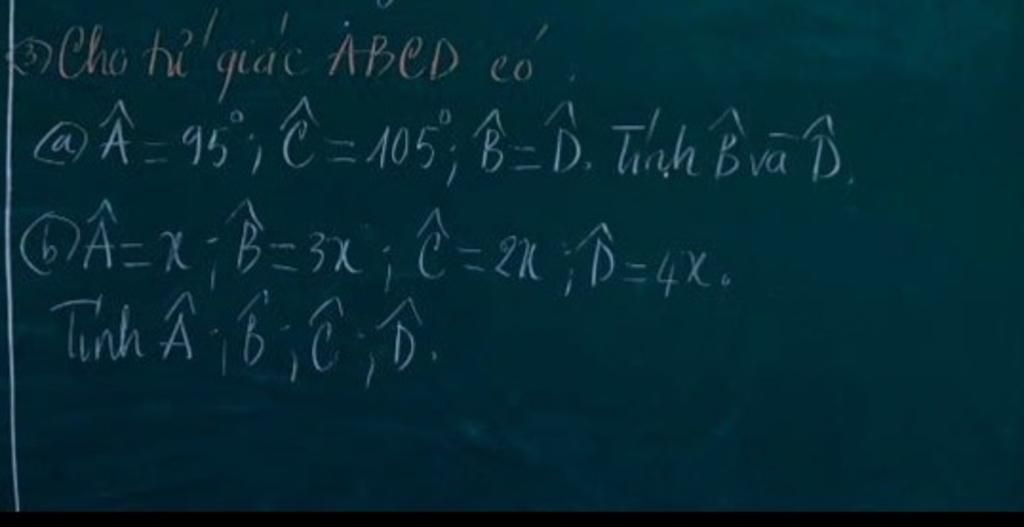 ③ Cho tứ giác ABCD có
ⓐ Â = 95°; Ĉ = 105°; B̂ = D̂. Tính B̂ và D̂.
ⓑ Â = x; B̂ = 3x; Ĉ = 2x; D̂ = 4x.
Tính Â; B̂; Ĉ; D̂.